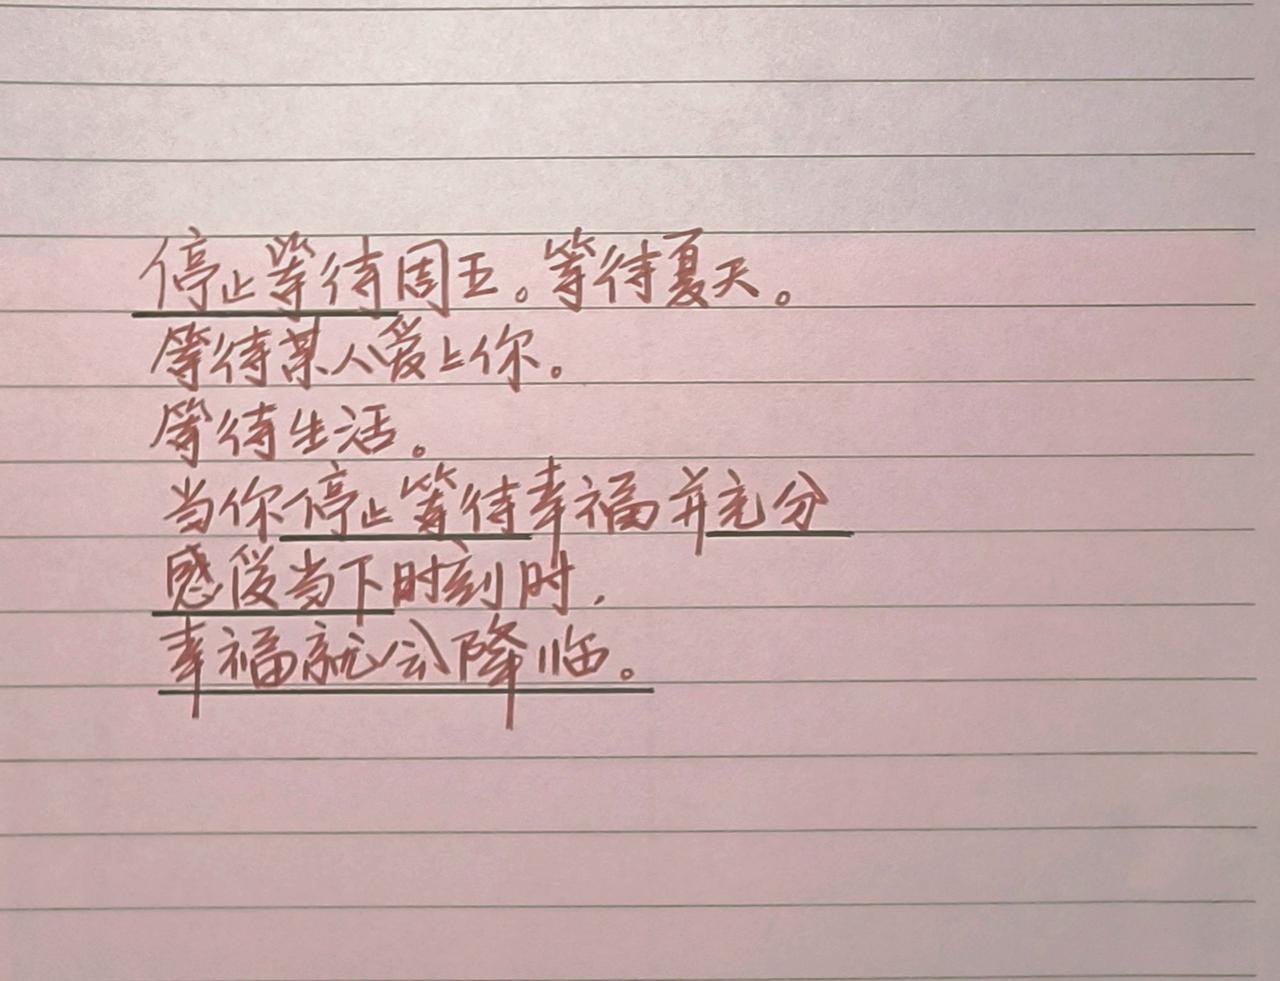 停止等待周五。等待夏天。
等待某人爱上你。
等待生活。
当你停止等待幸福并充分
感受当下时刻时，
幸福就会降临。